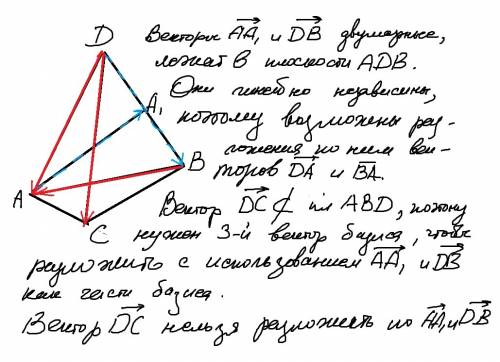 D
Векторы AA₁ и DB двумерные,
лежат в плоскости ADB.
Они линейно независимы,
поэтому возможны раз-
ложения по ним век-
торов DA и BA.
A₁
B
A
C
Вектор DC ⊄ пл ABD, поэтому
нужен 3-й вектор базиса, чтобы
разложить с использованием AA₁ и DB
как части базиса.
Вектор DC нельзя разложить по AA₁ и DB